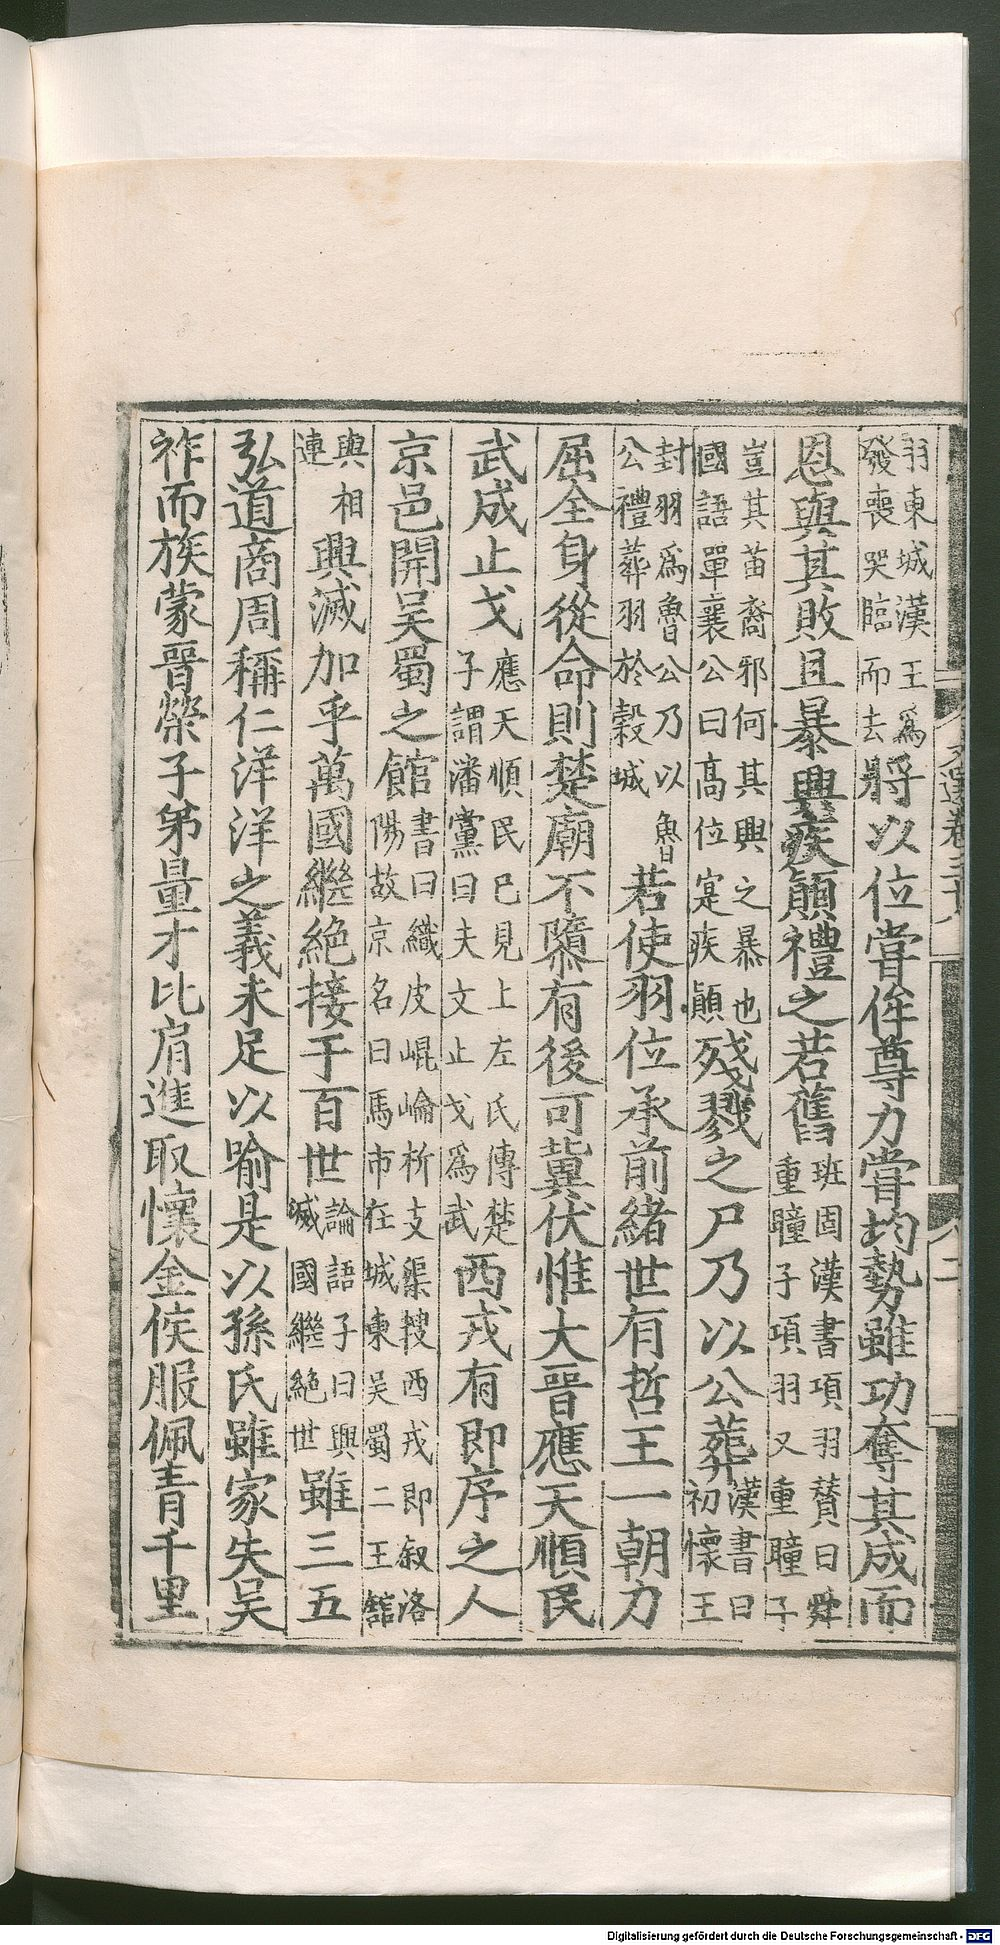 文選卷三十八 二
羽東城漢王爲發喪哭臨而去將以位甞侔尊力甞均勢雖功奪其成而
恩與其敗且暴興疾顛禮之若舊班固漢書項羽贊曰舜重瞳子項羽又重瞳子
豈其苗裔邪何其興之暴也國語單襄公曰高位寔疾顛殘戮之尸乃以公葬漢書曰初懷王
封羽爲魯公乃以魯公禮葬羽於穀城若使羽位承前緒世有哲王一朝力
屈全身從命則楚廟不隳有後可冀伏惟大晉應天順民
武成止戈應天順民已見上左氏傳楚子謂潘黨曰夫文止戈爲武西戎有即序之人
京邑開吳蜀之館書曰織皮崐崘析支渠搜西戎即叙洛陽故京名曰馬市在城東吳蜀二王館
與相連興滅加乎萬國繼絶接于百世論語子曰興滅國繼絶世雖三五
弘道商周稱仁洋洋之義未足以喻是以孫氏雖家失吳
祚而族蒙晉榮子弟量才比肩進取懷金侯服佩青千里
Digitalisierung gefördert durch die Deutsche Forschungsgemeinschaft - DFG